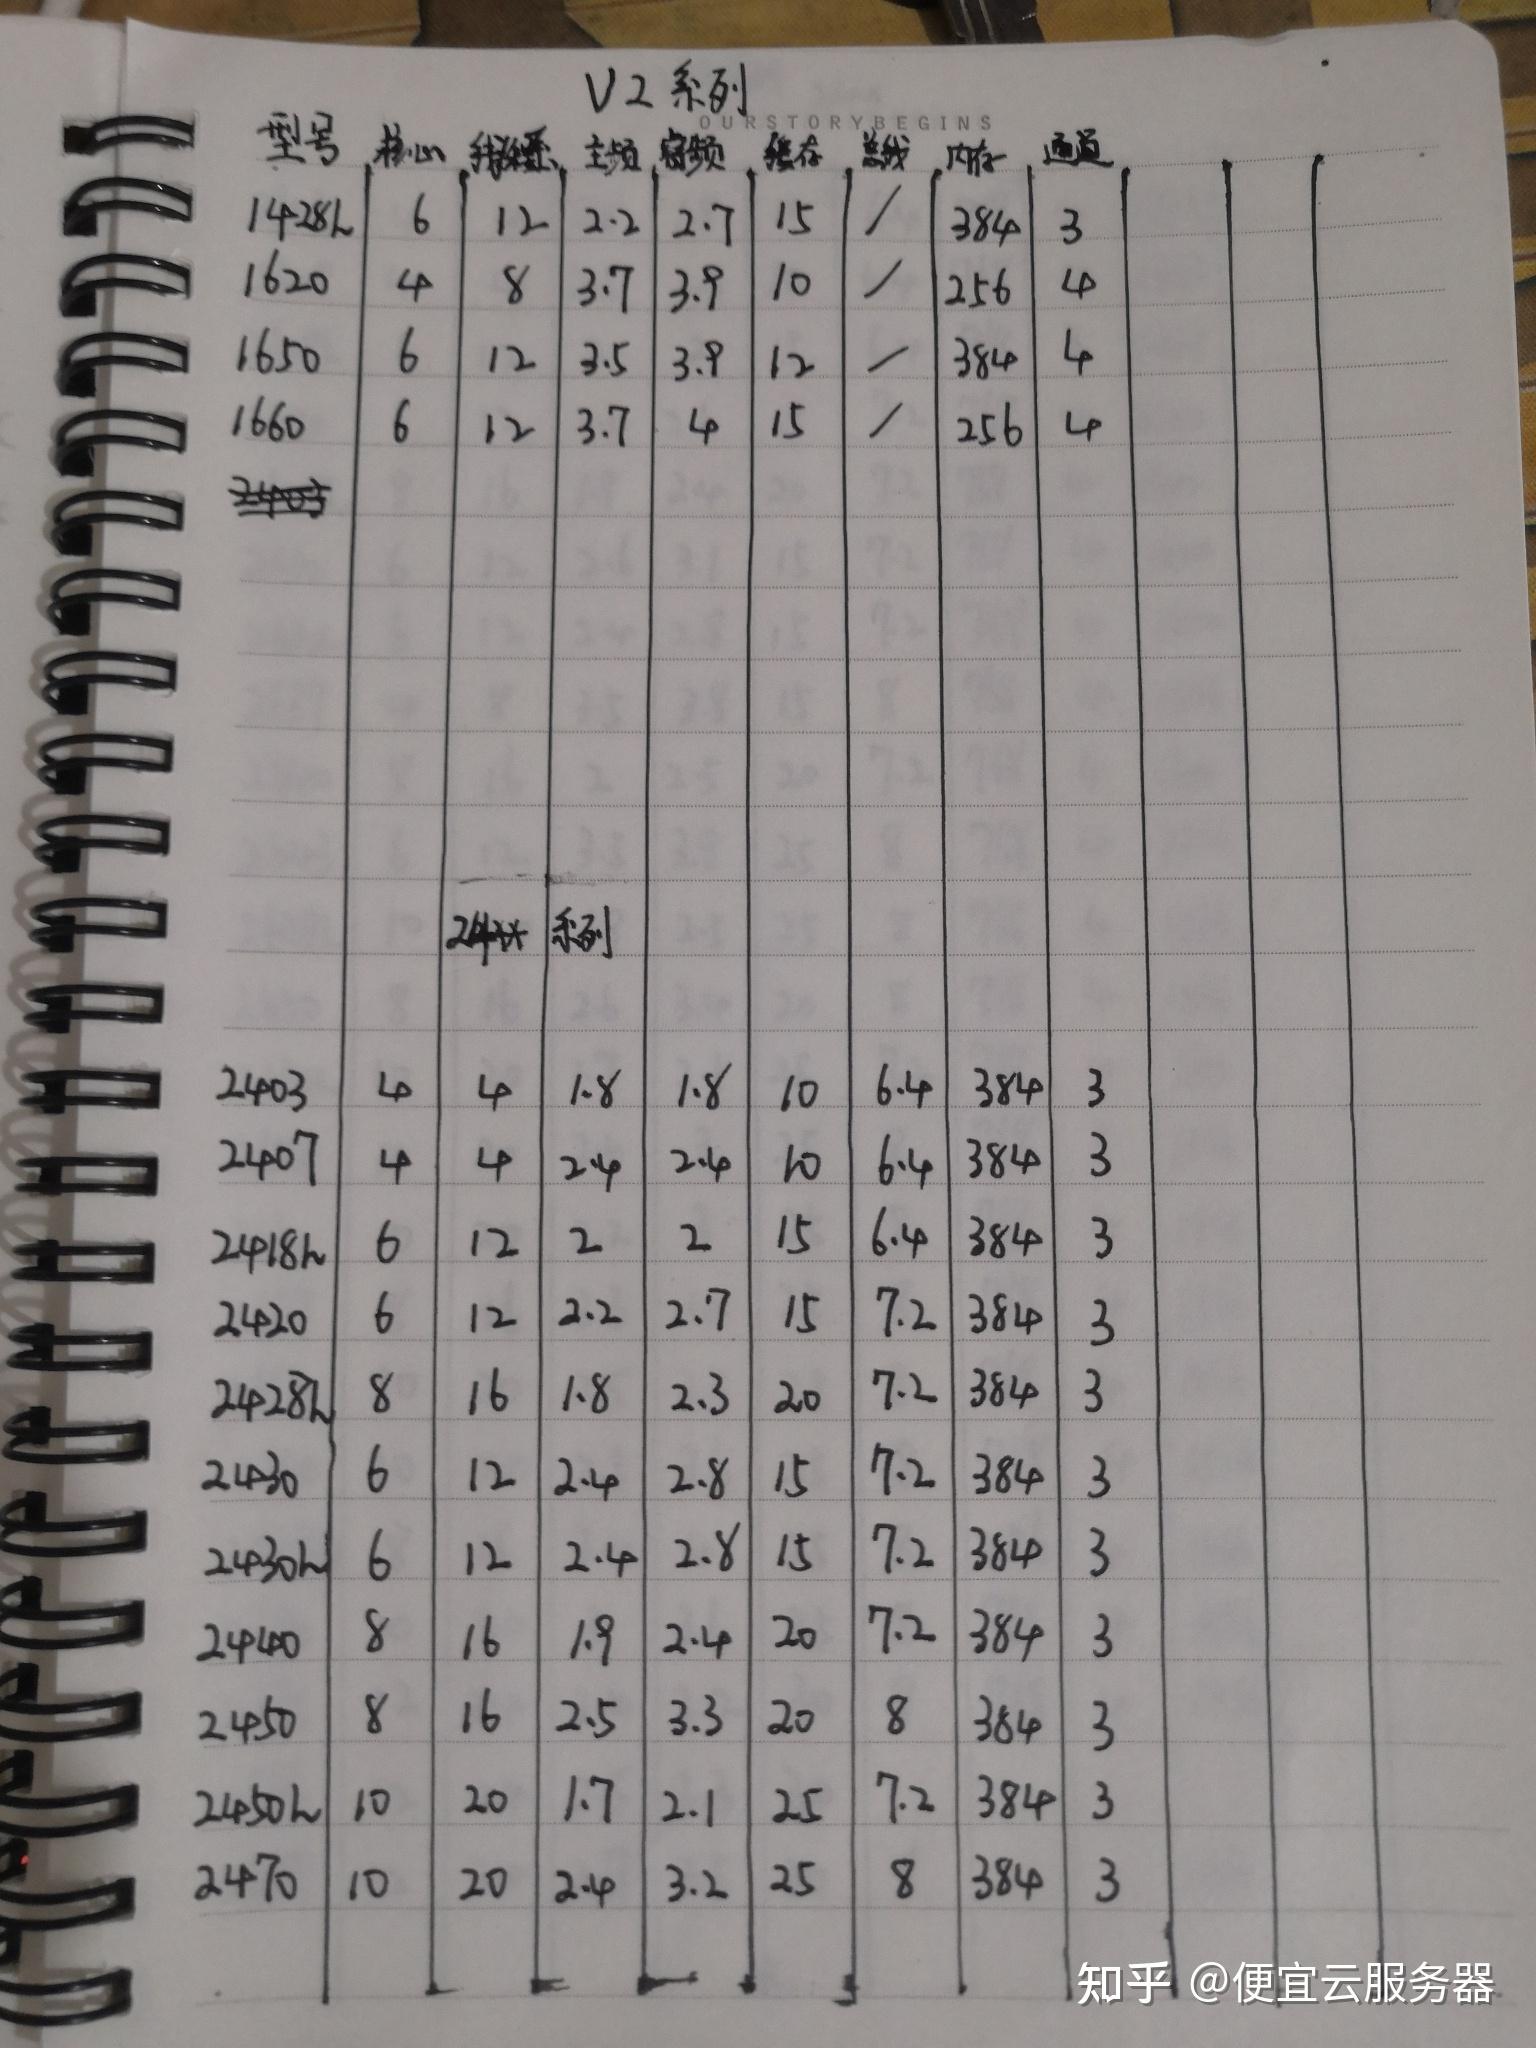 V2系列
OURSTORYBEGINS
型号 核心 主频 睿频 缓存 总线 内存 通道
1428L 6 12 2.2 2.7 15 / 384 3
1620 4 8 3.7 3.9 10 / 256 4
1650 6 12 3.5 3.9 12 / 384 4
1660 6 12 3.7 4 15 / 256 4
2403
24** 系列
2403 4 4 1.8 1.8 10 6.4 384 3
2407 4 4 2.4 2.4 10 6.4 384 3
2418L 6 12 2 2 15 6.4 384 3
2420 6 12 2.2 2.7 15 7.2 384 3
2428L 8 16 1.8 2.3 20 7.2 384 3
2430 6 12 2.4 2.8 15 7.2 384 3
2430L 6 12 2.4 2.8 15 7.2 384 3
2440 8 16 1.9 2.4 20 7.2 384 3
2450 8 16 2.5 3.3 20 8 384 3
2450L 10 20 1.7 2.1 25 7.2 384 3
2470 10 20 2.4 3.2 25 8 384 3
知乎 @便宜云服务器